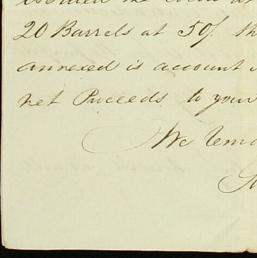 20 Barrels at 50/. th
annexed is account
net Proceeds to your
We rema